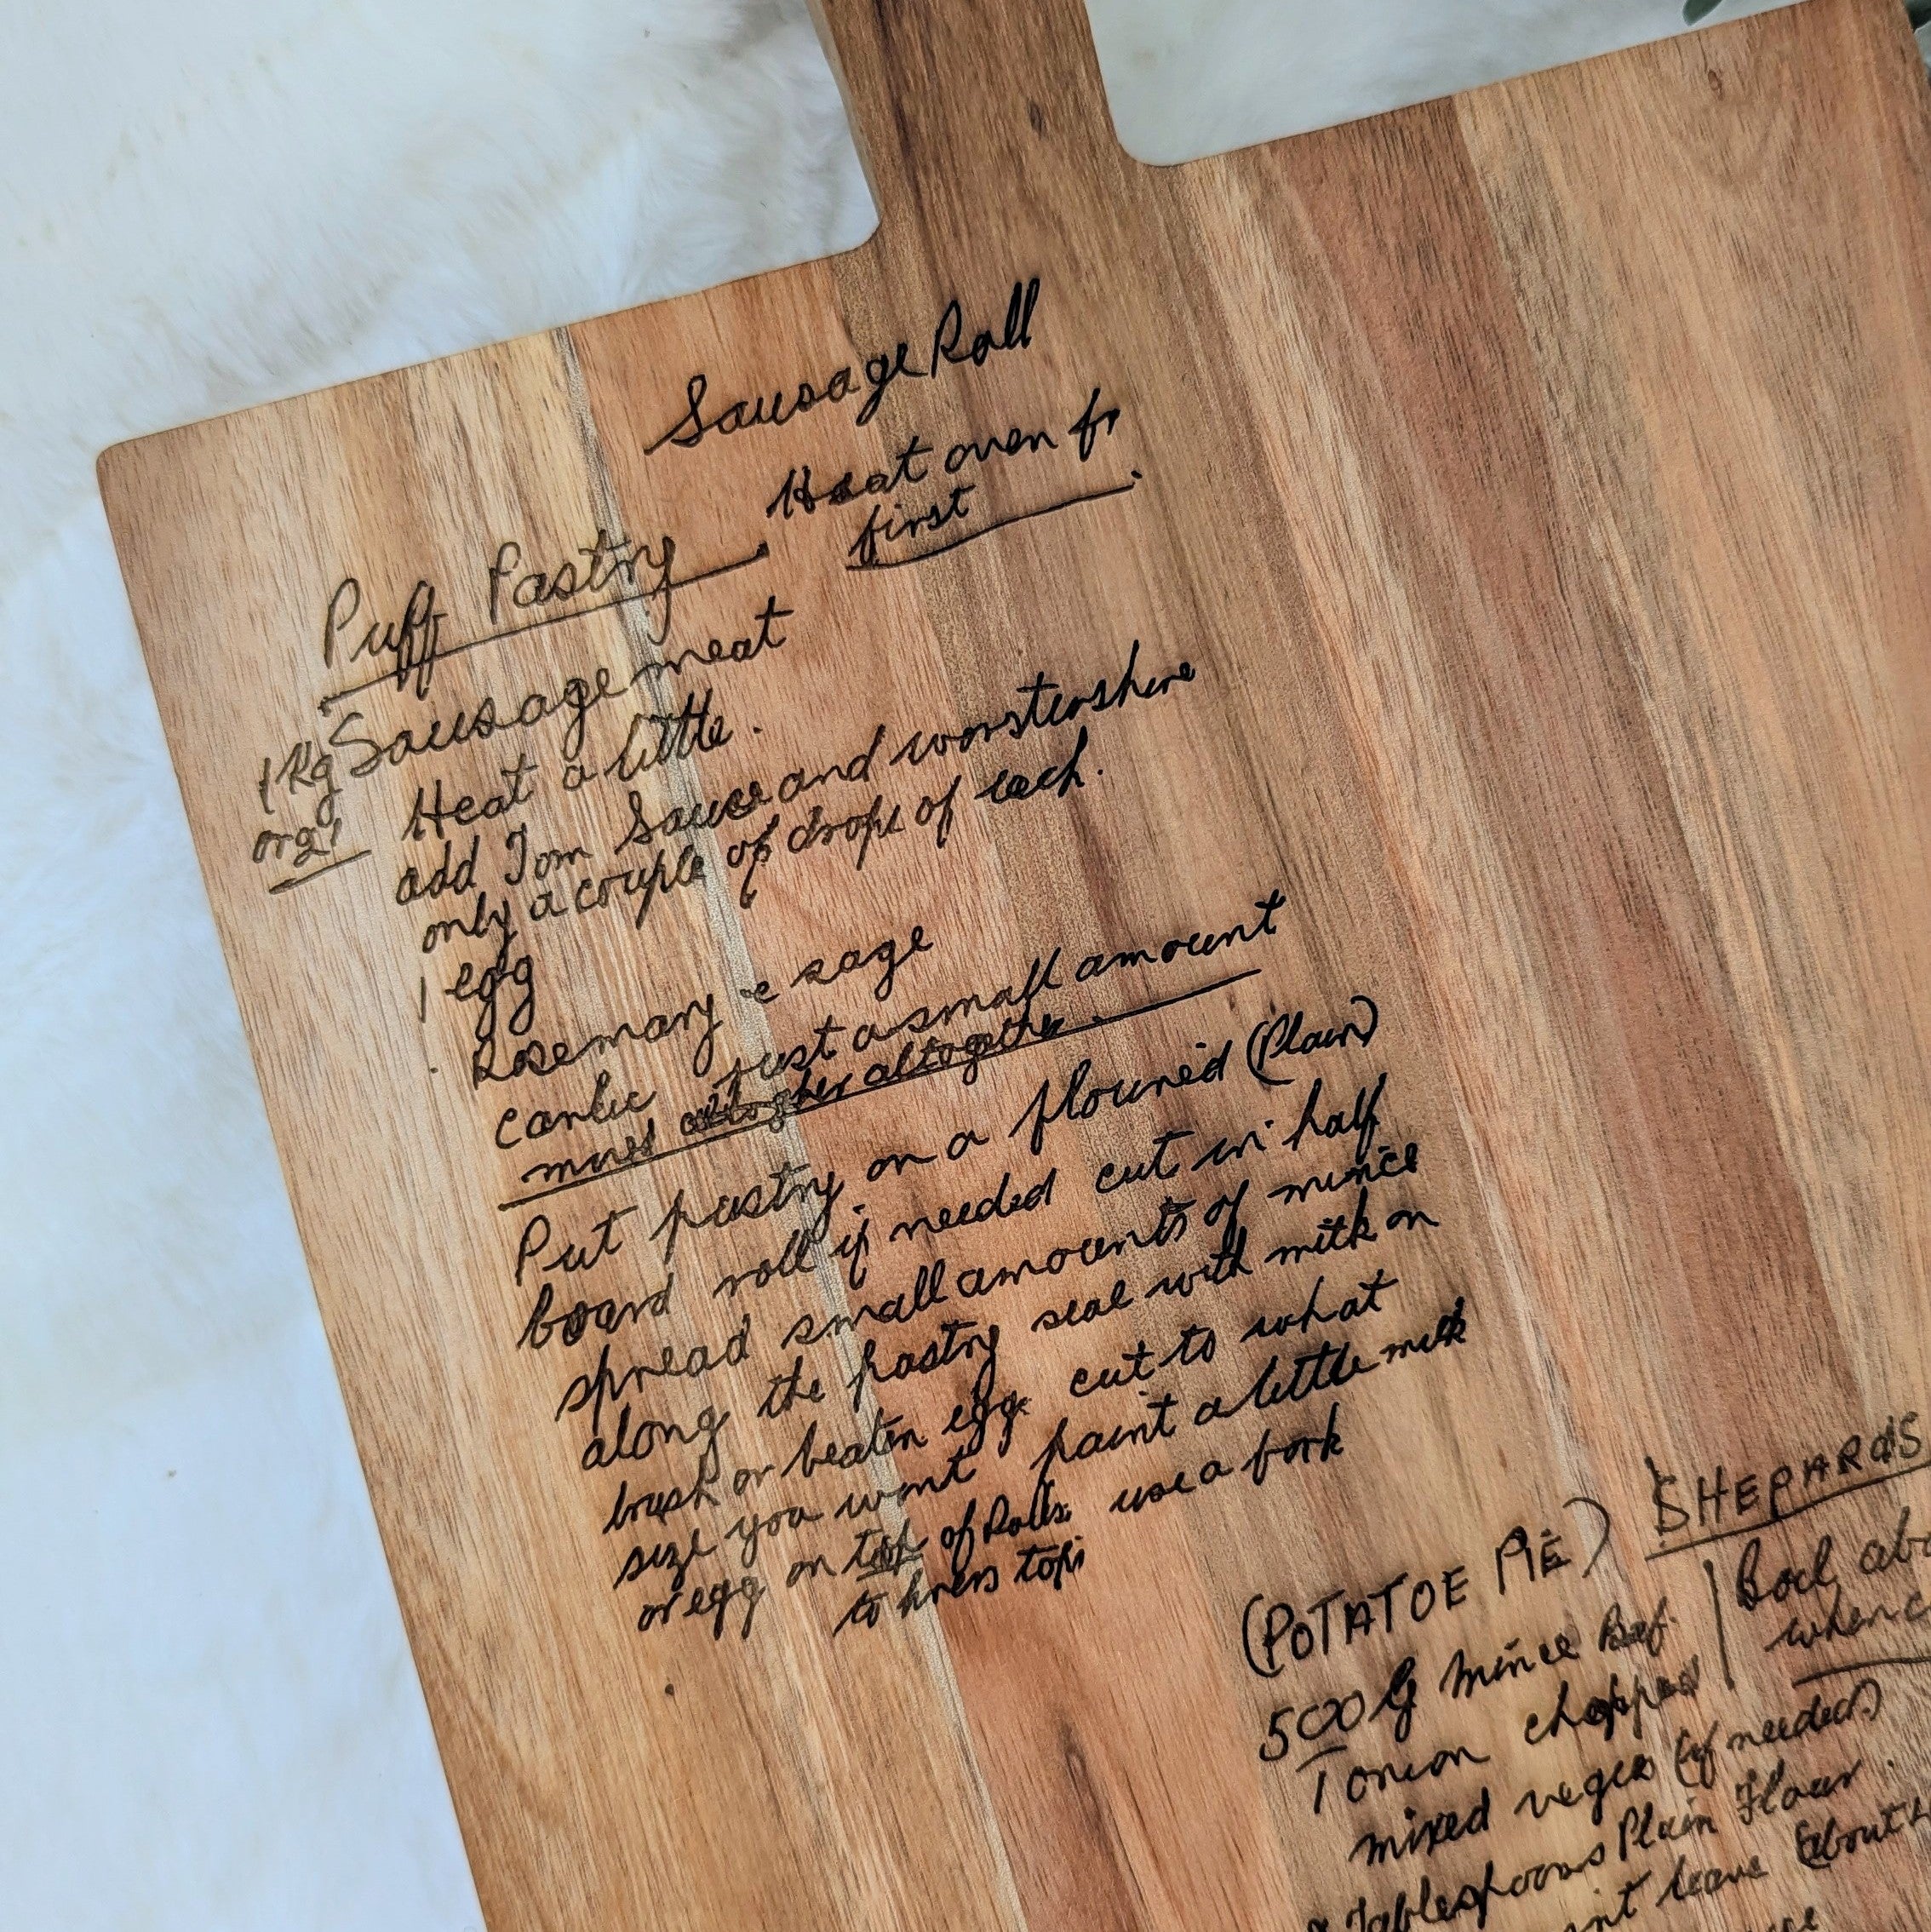 Sausage Roll
Heat oven fr
first
Puff Pastry
1kg Sausage meat
or 2?
Heat a little.
add Tom Sauce and worstershire
only a couple of drops of each.
1 egg
Rosemary e sage
just a small amount
altogether.
Put pastry on a floured (Plain)
board roll if needed cut in half
spread small amounts of mince
along the pastry seal with milk on
brush or beaten egg. cut to what
size you want paint a little milk
or egg on top of Rolls. use a fork
to press tops
(POTATOE PIE) SHEPARdS
500 G Mince Beef.
1 onion chopped
mixed veges (if needed)
Tablespoons Plain Flour.
leave (about
Boil abo
when c